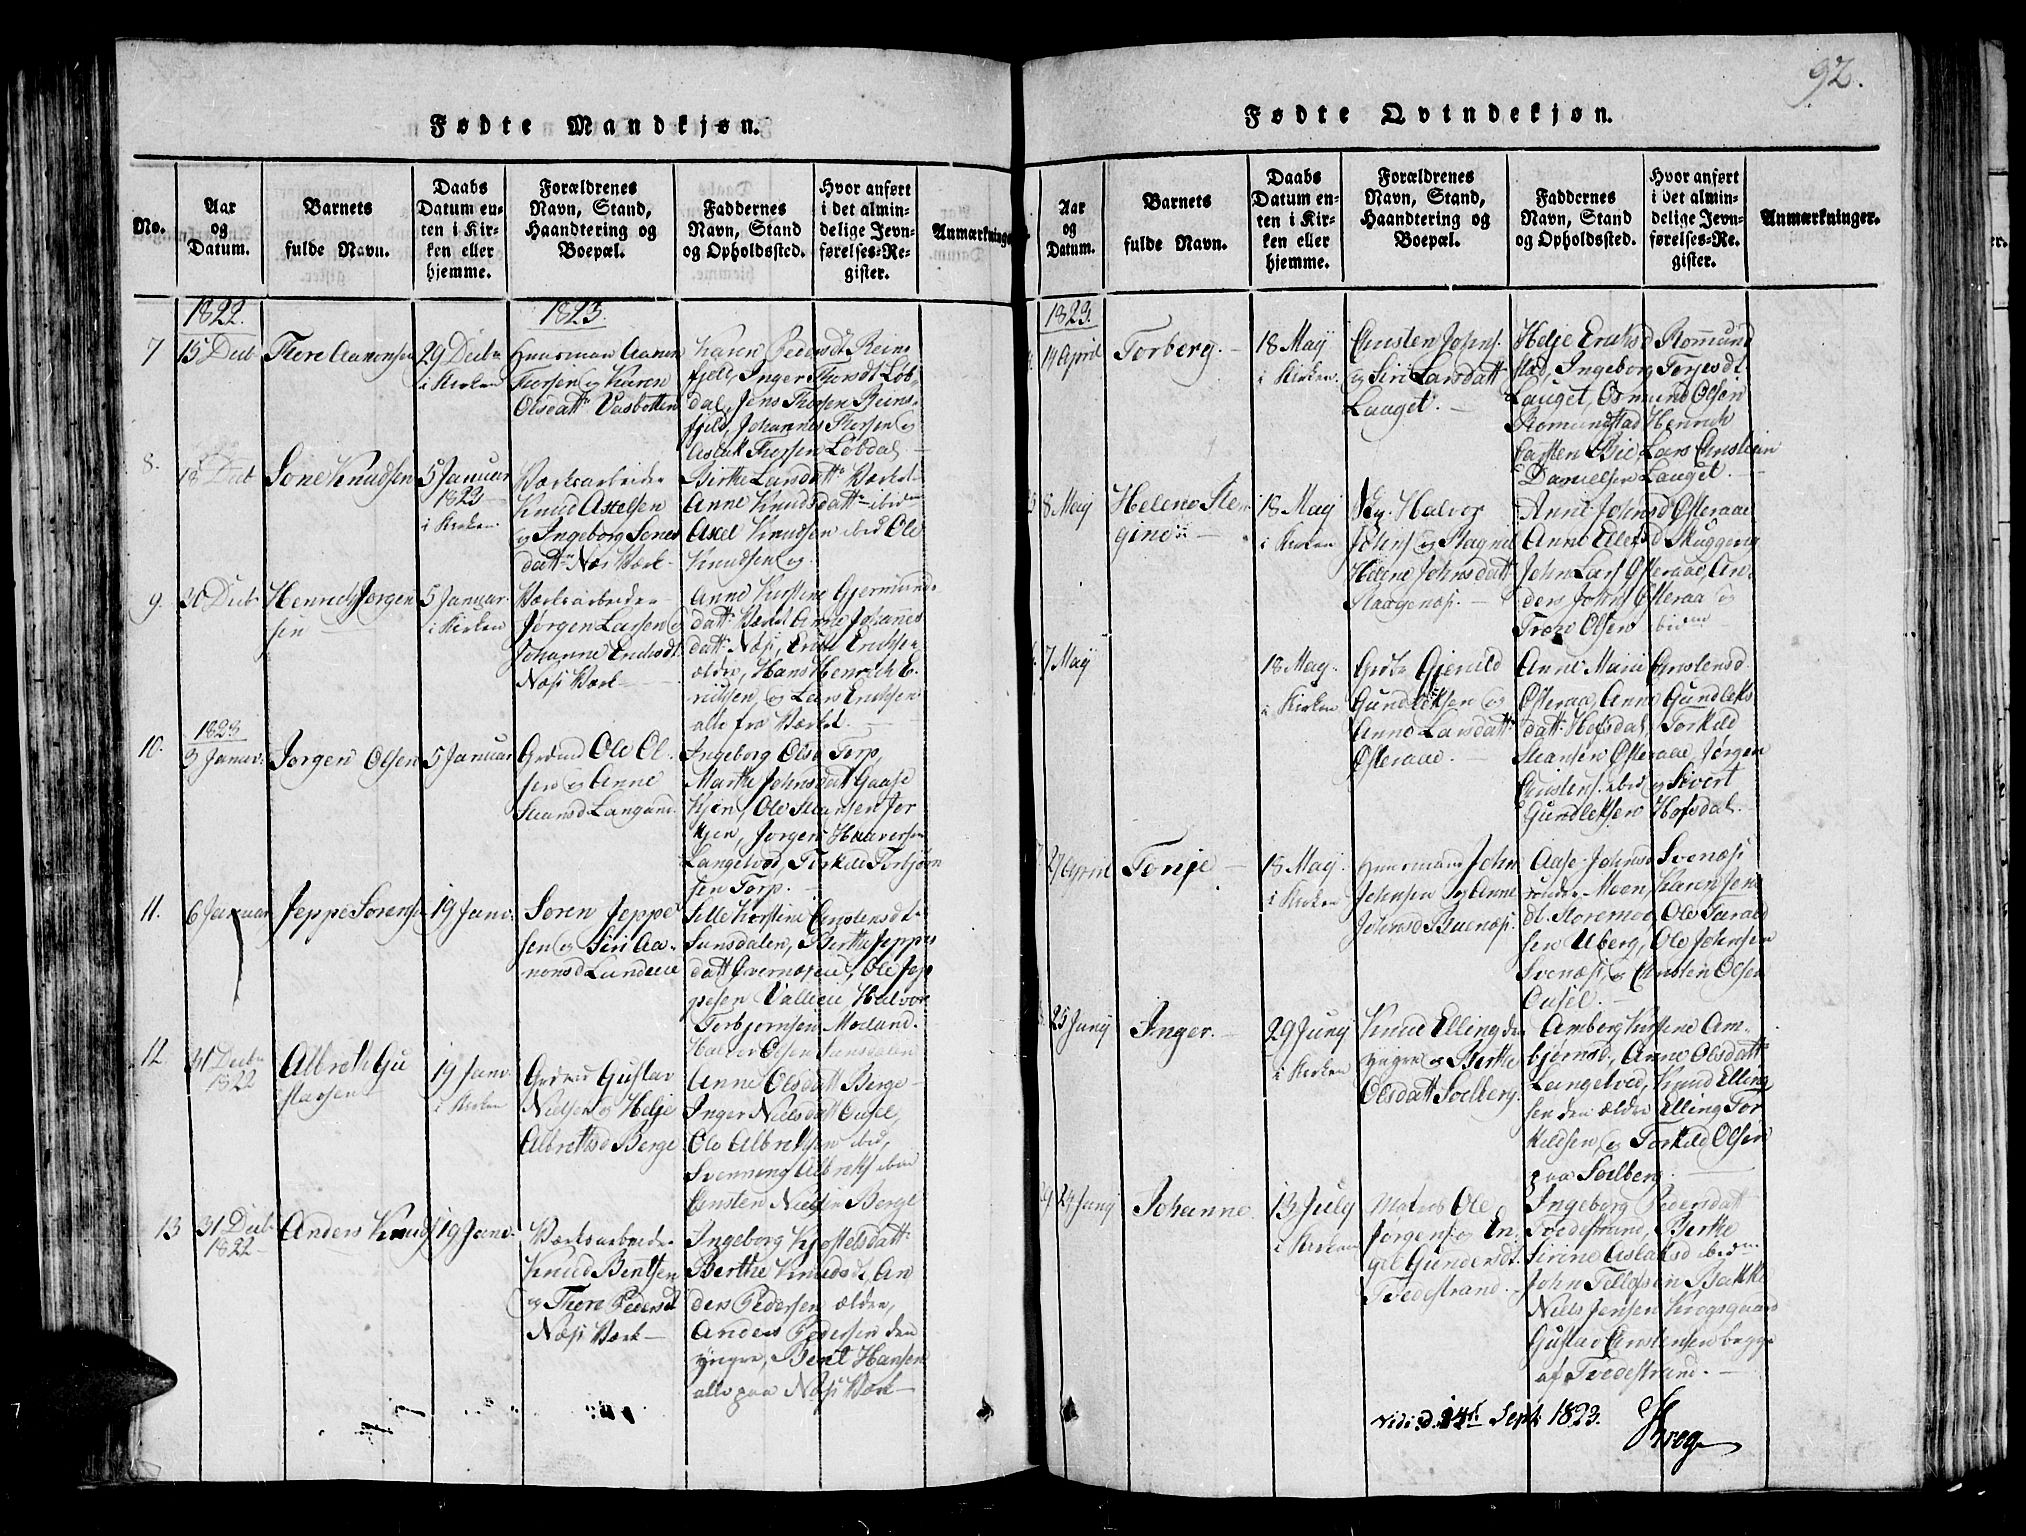 92.
Fødte Mandkjøn.
No.
Aar og Datum.
Barnets fulde Navn.
Daabs Datum enten i Kirken eller hjemme.
Forældrenes Navn, Stand, Haandtering og Boepæl.
Faddernes Navn, Stand og Opholdssted.
Hvor anført i det almindelige Jevnførelses-Register.
Anmærkninger
1822.
1823.
7
15 Decbr
Thore Aanonsen
29 Decbr
i Kirken
Huusmand Aanon
Thorsen og Karen
Olsdattr Vasbotten
Karen Pedersdt Reins
fjeld, Inger Thorsdt Løb
dal, Jens Thorsen Reins
fjeld, Johannes Thorsen og
Aslak Thorsen Løbdal
8.
18 Decbr
Sone Knudsen
5 Januar
1823
i Kirken
Værksarbeider
Knud Axelsen
og Ingeborg Sones
dattr Næs Værk
Birthe Larsdattr Værket
Anne Knudsdattr ibidm
Axel Knudsen ibid Ole
Knudsen og
9.
30 Decbr
Henrich Jørgen
sen
5 Januar
i Kirken
Værksarbeider
Jørgen Larsen og
Johanne Erichsdt
Næs Værk
Anne Kirstine Gjermunds
dattr Værket Anne Johannes
dattr Næs, Erich Erichsen
ældre, Hans Henrich E
richsen, og Lars Erichsen
alle fra Værket
1823
10.
3 Januar
Jørgen Olsen
5 Januar
Grdmd Ole Ol
sen og Anne
Steansd Langang
Ingeborg Olsd Torp,
Marthe Johnsdat Gaase
kjen, Ole Steansen For
kjen, Jørgen Halvorsen
Langelvod, Terkild Torbjørn
sen Torp.
11.
6 Januar
Jeppe Sørensen
19 Janv.
Søren Jeppe
sen og Siri Aa
nonsd Lundeie
Sille Kirstine Christensdt
Sunsdalen, Berthe Jeppes
datt Qvernæseie, Ole Jep
pesen Valleeie Halvor
Torbjørnsen Morland.
Halvor Olsen Sunsdalen
12.
31 Decbr
1822
Albreth Gu
stavsen
19 Janv.
i Kirken
Grdmd Gustav
Nielsen og Helje
Albrethsd Berge
Anne Olsdatt Berge
Inger Nielsdatt Ousel,
Ole Albrethsen ibid,
Svennung Albreths ibid
Christen Nielsen Berge
13
31 Decbr
1822
Anders Knuds
19 Janv.
Værksarbeider
Knud Bentsen
og Thore Pedersdt
Næs Værk
Ingeborg Kjøstelsdattr
Berthe Knudsdt, An
ders Pedersen ældre,
Anders Pedersen den
yngre, Bent Hansen
alle paa Næs Værk
Fødte Qvindekjøn.
Aar og Datum.
Barnets fulde Navn.
Daabs Datum enten i Kirken eller hjemme.
Forældrenes Navn, Stand, Haandtering og Boepæl.
Faddernes Navn, Stand og Opholdssted.
Hvor anført i det almindelige Jevnførelses-Register.
Anmærkninger.
1823.
14 April
Torberg.
18 Maij
i Kirken.
Christen Johns.
og Siri Larsdatt
Lauget.
Helje Erichsd Rommund
stad, Ingeborg Torjesdt
Lauget, Osmund Olsen
Romundstad Henrich
Carsten Bie, Lars Christian
Danielsen Lauget.
8 Maij
Helene Ste
gine
18 Maij
i Kirken
Halvor
Johns og Ragnil
Helene Johnsdatt
Staagenæs.
Anne Johnsd Østeraae
Anne Ellefsd Skuggevig
John Lars Østeraae, An
ders Johns Østeraa og
Tron Olsen ibidm
7 Maij
18 Maij.
i Kirken
Gjeruld
Gundleksen og
Anne Larsdatt
Østeraae.
Anne Marie Christensd
Østeraa, Anne Gundleks
datt Hofsdal, Torkild
Steansen Østeraae, Jørgen
Christens. ibid og Sivert
Gundleksen Hofsdal.
27 April
Tonje
18 Maij
i Kirken
Huusmand John
Johnsen og Anne
Johnsd Svenæs.
Aase Johnsd Svenæs
Moen, Karen Jon
dt Storemoe, Ole Tarald
sen Uberg, Ole Johnsen
Svenæs, og Christen Olsen
Ousel.
25 Junij
Inger.
29 Junij
i Kirken
Knud Elling den
yngre og Berthe
Olsdatt Solberg.
Amberg Kirstine Am
bjørnsd, Anne Olsdatt
Langelved, Knud Elling
sen den ældre Elling Tor
kildsen, og Torkild Olsen
paa Solberg.
29
24 Junij
Johanne
13 July
i Kirken
Matros Ole
Jørgens og In
geb. Gundersdt.
Tvedestrand.
Ingeborg Pedersdatt
Tvedestrand, Berthe
Sirine Aslaksd ibidm
John Tellefsen Bakke
Niels Jensen Krogsgaard
Gustav Christensen begge
af Tvedestrand.
Vidi d. 14de Septr 1823.
Krog